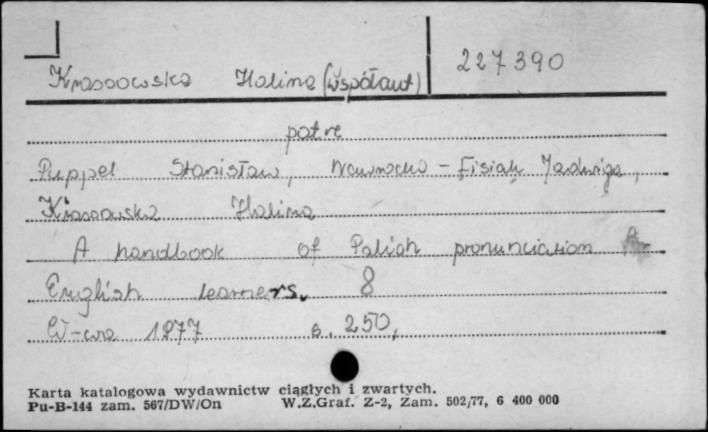 Krassowska Halina (współaut) 227390
patrz
Puppel Stanisław, Nawrocka-Fisiak Jadwiga,
Krassowska Halina
A handbook of Polish pronunciation
English learners. 8
W-wa 1977 s. 250,
Karta katalogowa wydawnictw ciągłych i zwartych.
Pu-B-144 zam. 567/DW/On W.Z.Graf. Z-2, Zam. 502/77, 6 400 000